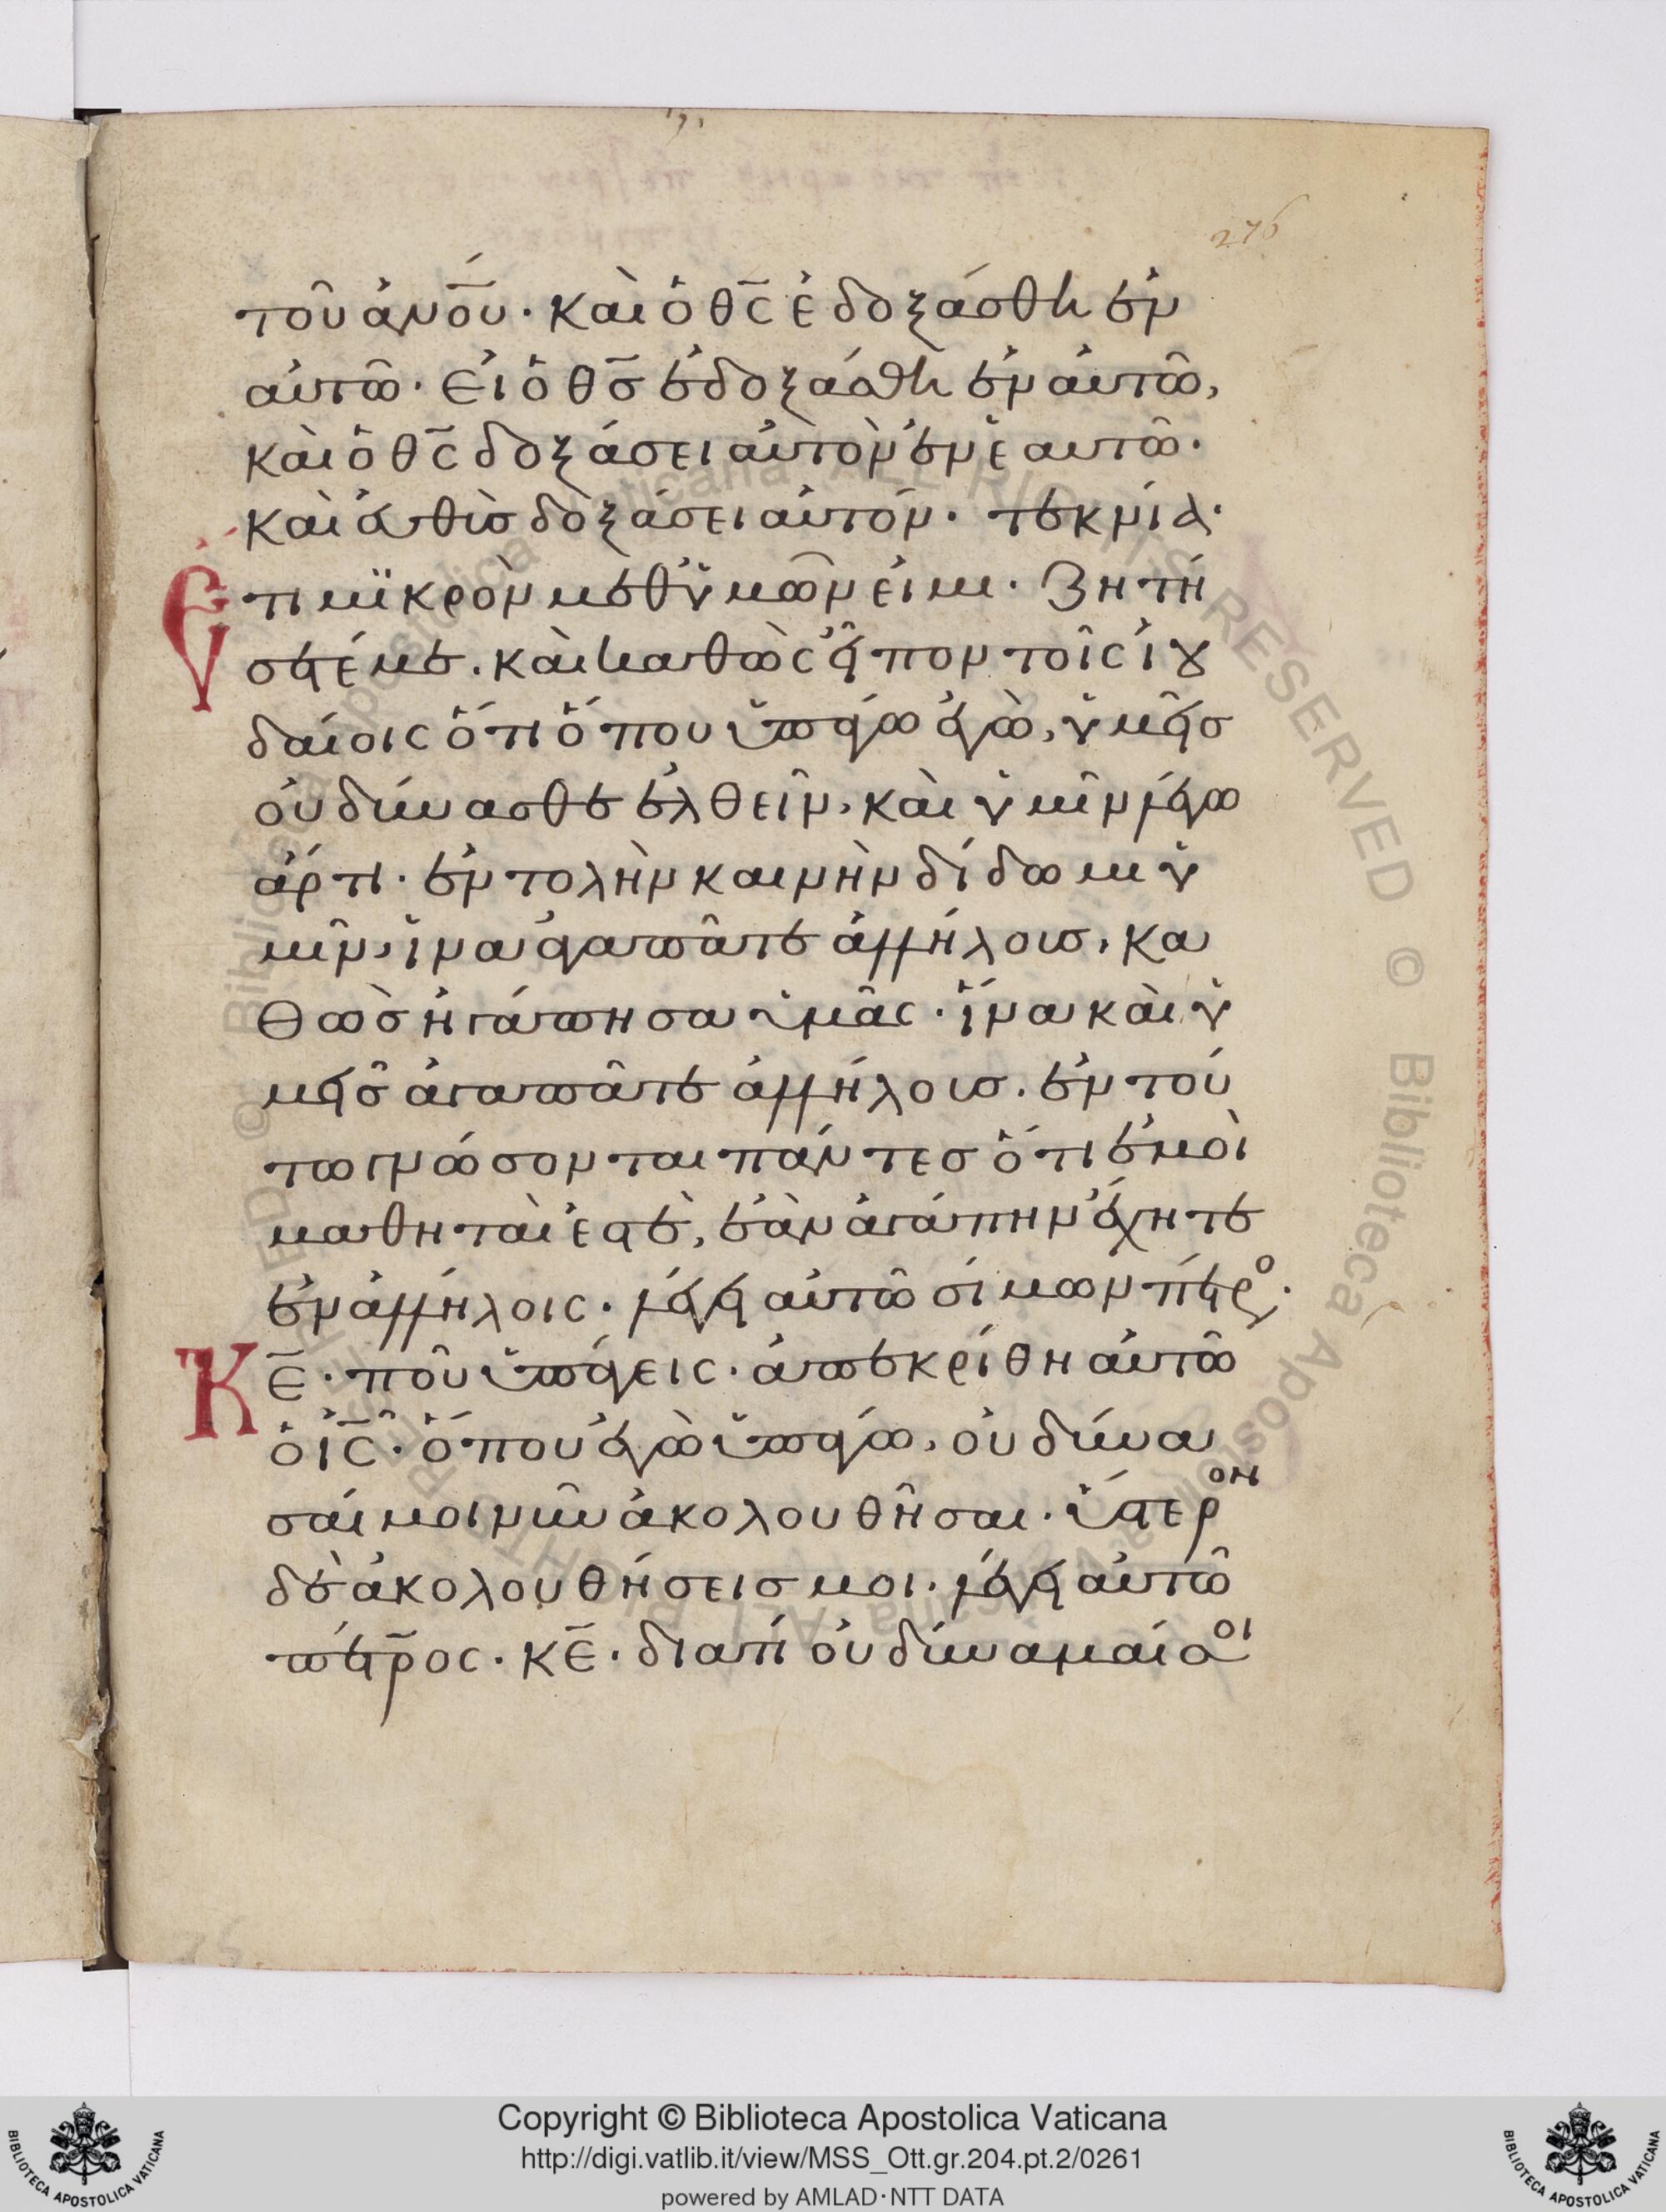 276
τοῦ ἀν̅ο̅υ̅· καὶ ὁ θ̅ς̅ ἐδοξάσθη ἐν
αὐτῶ· εἰ ὁ θ̅ς̅ ἐδοξάσθη ἐν αὐτῶ,
καὶ ὁ θ̅ς̅ δοξάσει αὐτὸν ἐν ἑαυτῶ·
καὶ εὐθὺς δοξάσει αὐτόν· τεκνία·
Ἔτι μϊκρὸν μεθ ὑμῶν εἰμι· ζητή
σετέ με· καὶ καθὼς εἶπον τοῖς ἰου
δαίοις ὅτι ὅπου ὑπάγω ἐγὼ, ὑμεῖς
οὐ δύνασθε ἐλθεῖν, καὶ ὑμῖν λέγω
ἄρτι· ἐντολὴν καινὴν δίδωμι ὑ
μῖν, ἵνα ἀγαπᾶτε ἀλλήλους, κα
θὼς ἠγάπησα ὑμᾶς· ἵνα καὶ ὑ
μεῖς ἀγαπᾶτε ἀλλήλους· ἐν τού
τω γνώσονται πάντες ὅτι ἐμοὶ
μαθηταὶ ἐστὲ, ἐὰν ἀγάπην ἔχητε
ἐν ἀλλήλοις· λέγει αὐτῶ σίμων πέτρο·
Κ̅ε̅· ποῦ ὑπάγεις· ἀπεκρίθη αὐτῶ
ὁ ι̅ς̅· ὅπου ἐγὼ ὑπάγω, οὐ δύνα
σαί μοι νῦν ἀκολουθῆσαι· ὕστερον
δὲ ἀκολουθήσεις μοι· λέγει αὐτῶ
πέτρος· κ̅ε̅· διατί οὐ δύναμαί σοι
Copyright © Biblioteca Apostolica Vaticana
http://digi.vatlib.it/view/MSS_Ott.gr.204.pt.2/0261
powered by AMLAD·NTT DATA
BIBLIOTECA APOSTOLICA VATICANA
BIBLIOTECA APOSTOLICA VATICANA